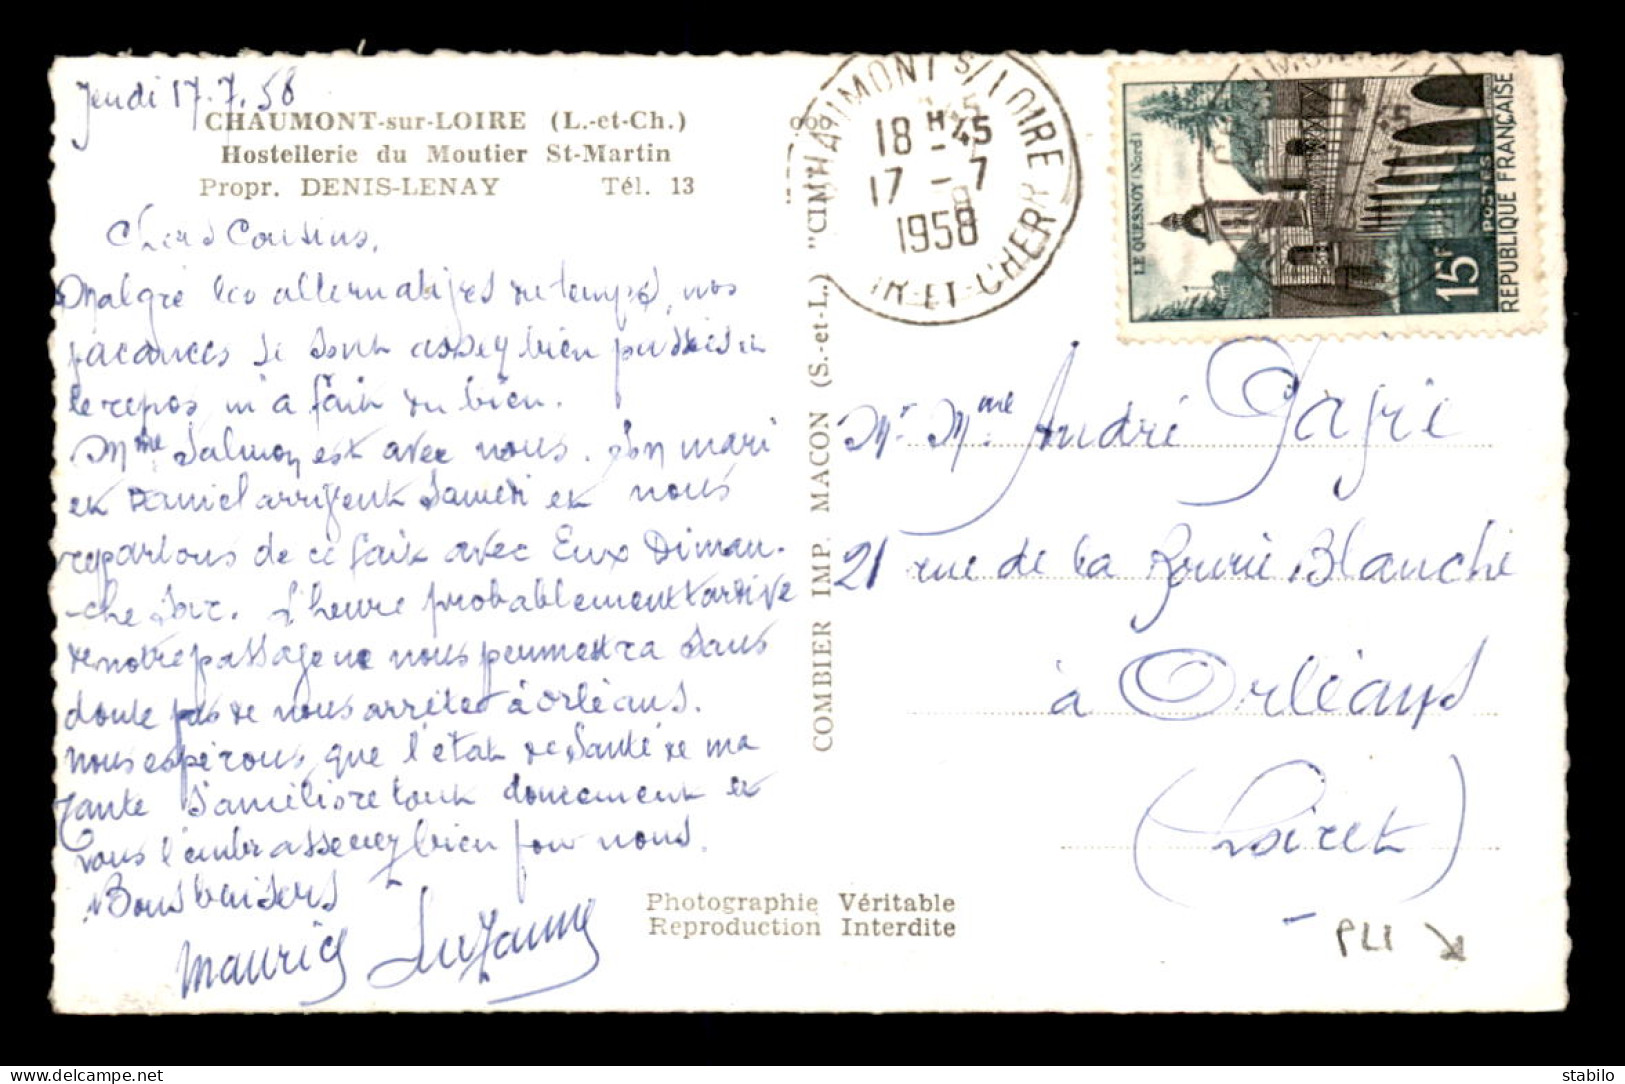 Jeudi 17.7.58
CHAUMONT-sur-LOIRE (L.-et-Ch.)
Hostellerie du Moutier St-Martin
Propr. DENIS-LENAY Tél. 13
Chers Cousins,
Malgré les alternatives du temps, nos
vacances se sont assez bien passées et
le repos m'a fait du bien.
Mme Salmon est avec nous. Son mari
et Daniel arrivent Samedi et nous
repartons de ce fait avec Eux Diman-
-che soir. L'heure probablement tardive
de notre passage ne nous permettra sans
doute pas de nous arrêter à Orléans.
Nous espérons que l'état de Santé de ma
Tante s'améliore tout doucement et
vous l'embrasserez bien pour nous.
Bons baisers
Maurice Suzanne
Photographie Véritable
Reproduction Interdite
COMBIER IMP. MACON (S.-et-L.) "CIM"
CHAUMONT S/ LOIRE
18 H 45
17 - 7
1958
LOIR-ET-CHER
LE QUESNOY (Nord)
15F
POSTES
REPUBLIQUE FRANÇAISE
Mr Mme André
21 rue de la Blanche
à Orléans
(Loiret)
PLI
stabilo